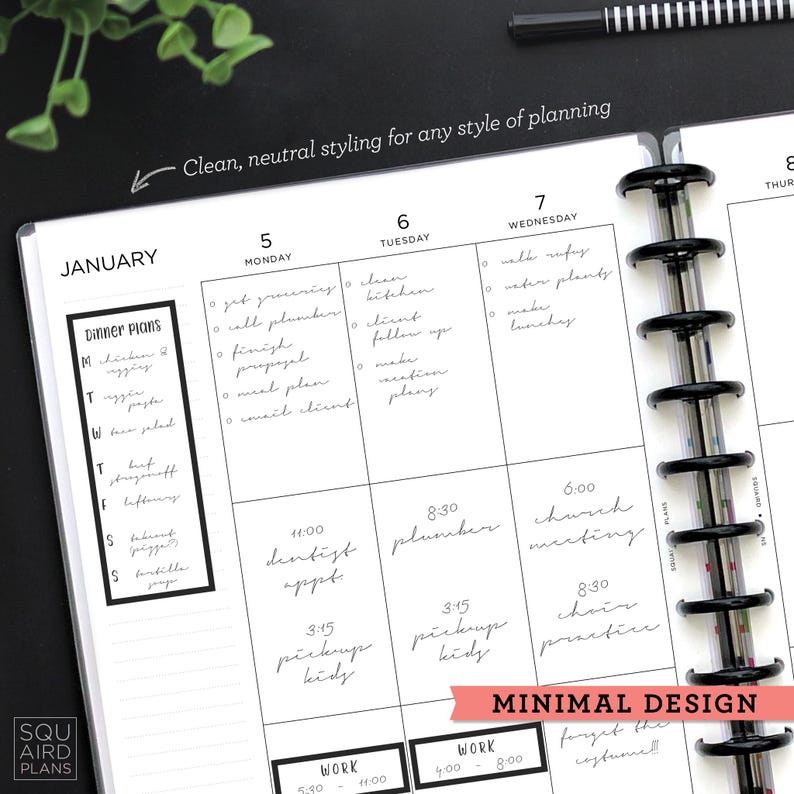 Clean, neutral styling for any style of planning
JANUARY
5
MONDAY
6
TUESDAY
7
WEDNESDAY
8
THUR
Dinner Plans
M chicken &
veggies
T veggie
pasta
W taco salad
T beef
stroganoff
F leftovers
S takeout
(pizza?)
S tortilla
soup
o get groceries
o call plumber
o finish
proposal
o meal plan
o email client
o clean
kitchen
o client
follow up
o make
vacation
plans
o walk rufus
o water plants
o make
lunches
11:00
dentist
appt.
3:15
pickup
kids
8:30
plumber
3:15
pickup
kids
6:00
church
meeting
8:30
choir
practice
WORK
5:30 - 11:00
WORK
4:00 - 8:00
forget the
costume!!!
SQUAIRD PLANS
MINIMAL DESIGN
SQU
AIRD
PLANS